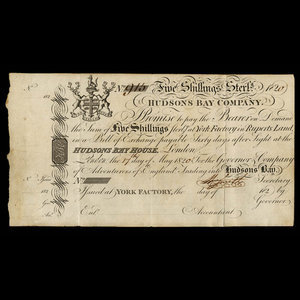 No. 1915 Five Shillings Sterlg. 1820
HUDSONS BAY COMPANY.
Promise to pay the Bearer on Demand
the Sum of Five Shillings Sterlg at York Factory in Ruperts Land
in a Bill of Exchange payable Sixty days after Sight at the
HUDSONS BAY HOUSE, London
London the 17th day of May 1820 for the Governor & Company
of Adventurers of England Trading into Hudsons Bay.
No. Secretary
Issued at YORK FACTORY, the day of 182
Governor
Ent. Accountant